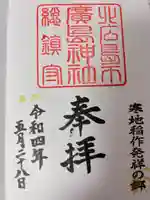 寒地稲作発祥の郷
北海道
廣島神社
總鎮守
奉拝
令和四年
五月二十八日